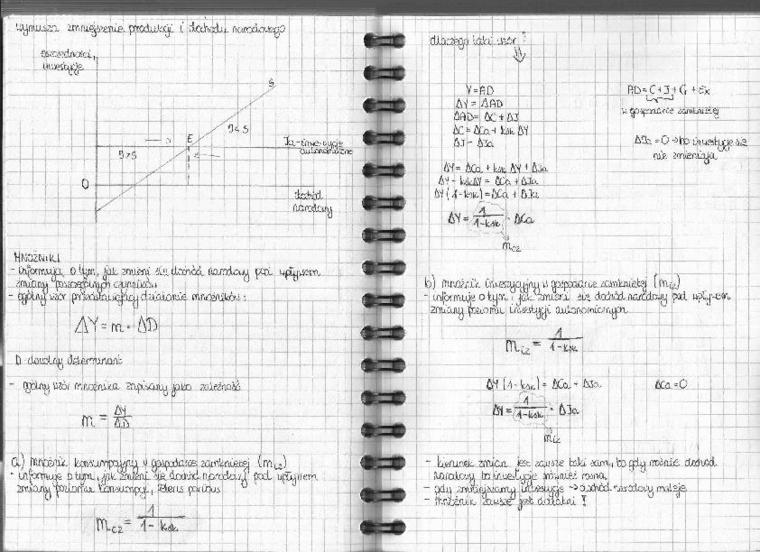 wymusza zmniejszenie produkcji i dochodu narodowego
oszczędności,
inwestycje
S
E
I<S
I>S
Ia-inwestycje
autonomiczne
0
dochód
narodowy
MNOŻNIKI
- informują o tym, jak zmieni się dochód narodowy pod wpływem
zmiany poszczególnych czynników
- ogólny wzór przedstawiający działanie mnożników:
ΔY = m · ΔD
D dowolny determinant
- ogólny wzór mnożnika zapisany jako zależność
m = ΔY/ΔD
a) mnożnik konsumpcyjny w gospodarce zamkniętej (m_cz)
- informuje o tym, jak zmieni się dochód narodowy pod wpływem
zmiany poziomu konsumpcji, ceteris paribus
m_cz = 1/(1-ksk)
dlaczego taki wzór?
Y=AD
ΔY = ΔAD
ΔAD = ΔC + ΔI
ΔC = ΔCa + ksk ΔY
ΔI - ΔIa
AD = C+I+G+Ex
w gospodarce zamkniętej
ΔIa = 0 → bo inwestycje się
nie zmieniają
ΔY = ΔCa + ksk ΔY + ΔIa
ΔY - kskΔY = ΔCa + ΔIa
ΔY (1-ksk) = ΔCa + ΔIa
ΔY = 1/(1-ksk) · ΔCa
m_cz
b) mnożnik inwestycyjny w gospodarce zamkniętej (m_iz)
- informuje o tym, jak zmieni się dochód narodowy pod wpływem
zmiany poziomu inwestycji autonomicznych
m_iz = 1/(1-ksk)
ΔY (1-ksk) = ΔCa + ΔIa
ΔCa = 0
ΔY = 1/(1-ksk) · ΔIa
m_iz
- kierunek zmian jest zawsze taki sam, bo gdy rośnie dochód
narodowy to inwestycje również rosną,
- gdy zmniejszamy inwestycje → dochód narodowy maleje
- mnożnik zawsze jest dodatni!